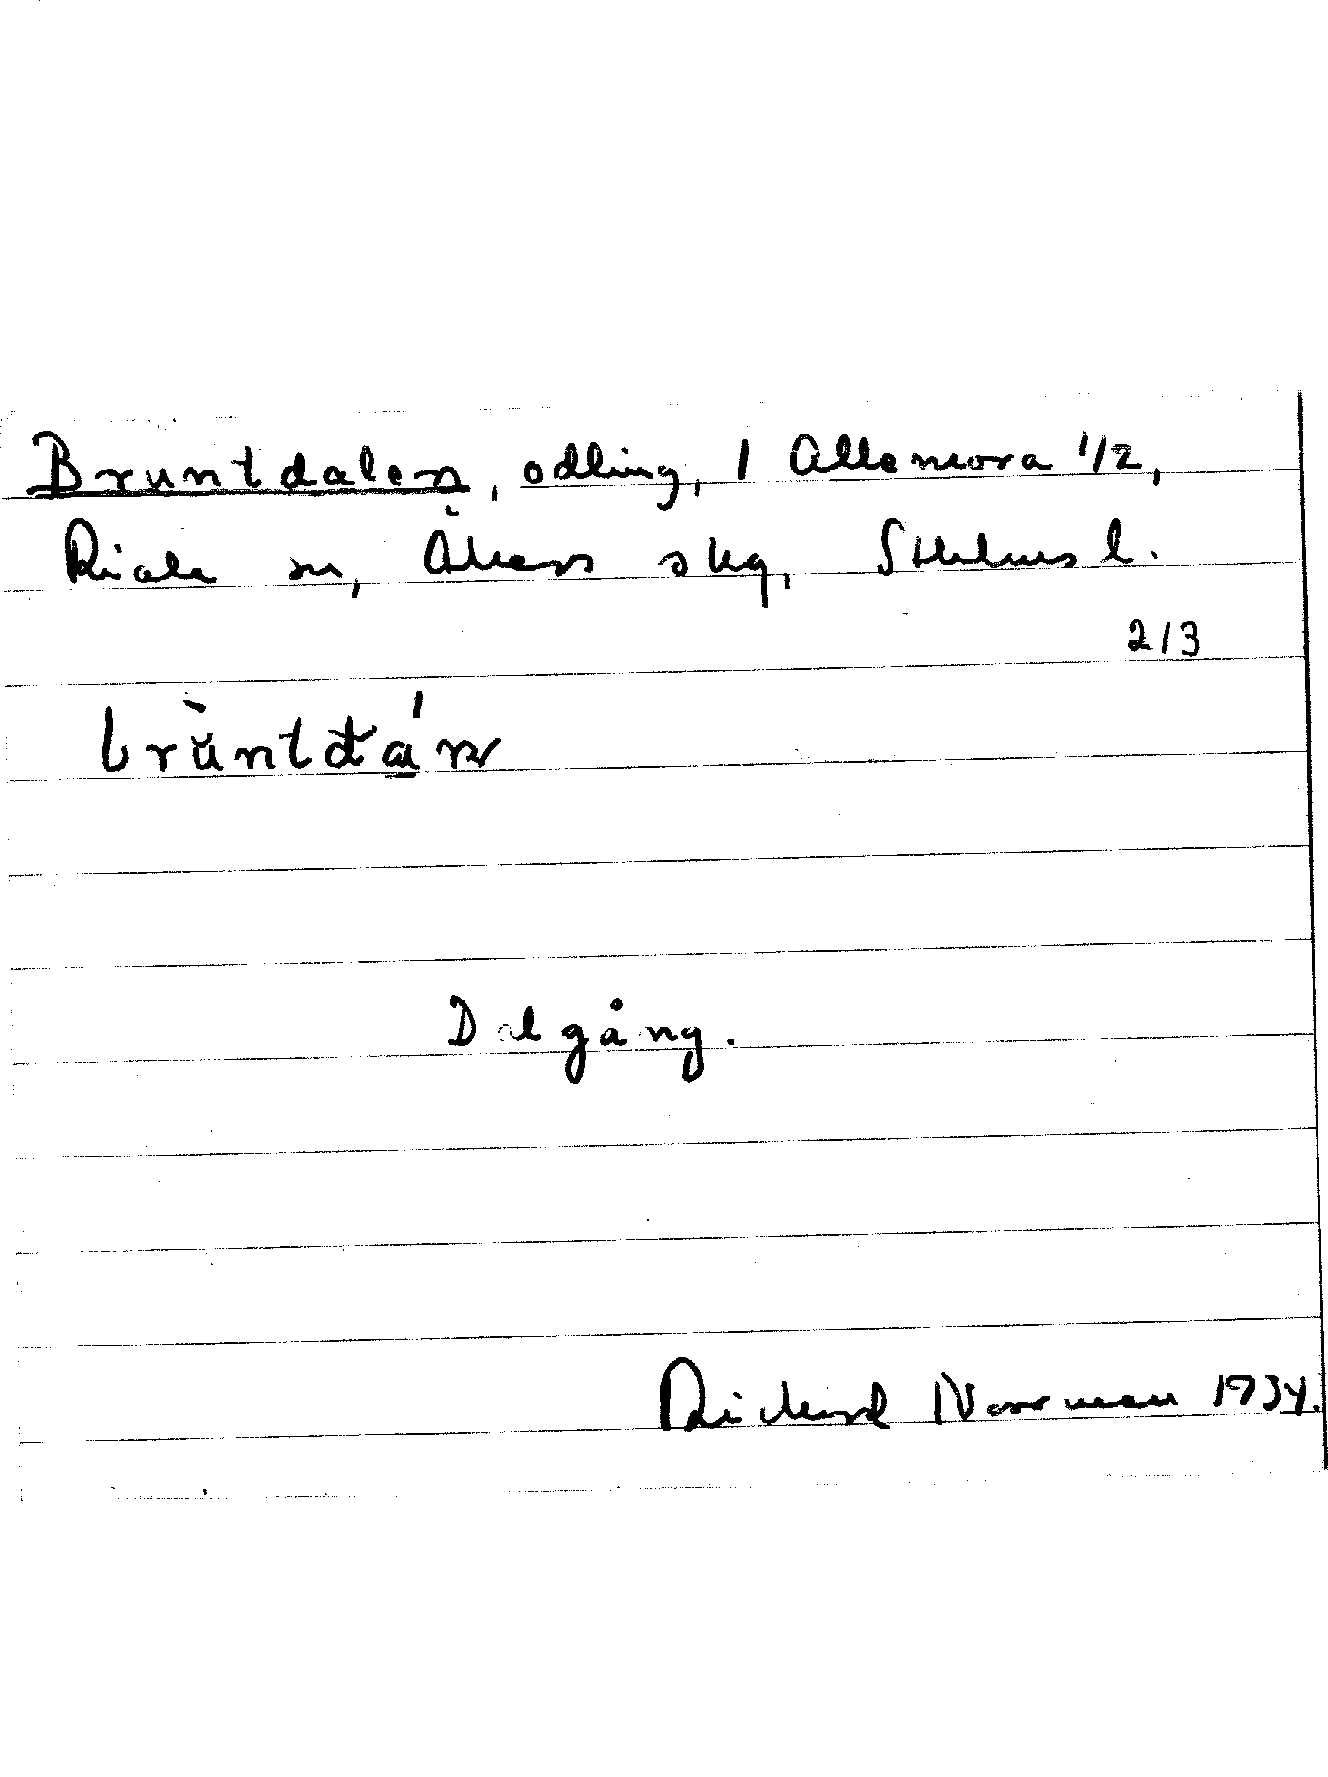 Bruntdalen, odling, 1 Allemora 1/2,
Riala sn, Åkers skg, Sthlms l.
2/3
brùntdán
Dalgång.
Rickard Norrman 1934.